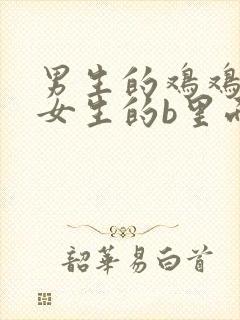 男生的鸡鸡
女生的b里
韶华易白首